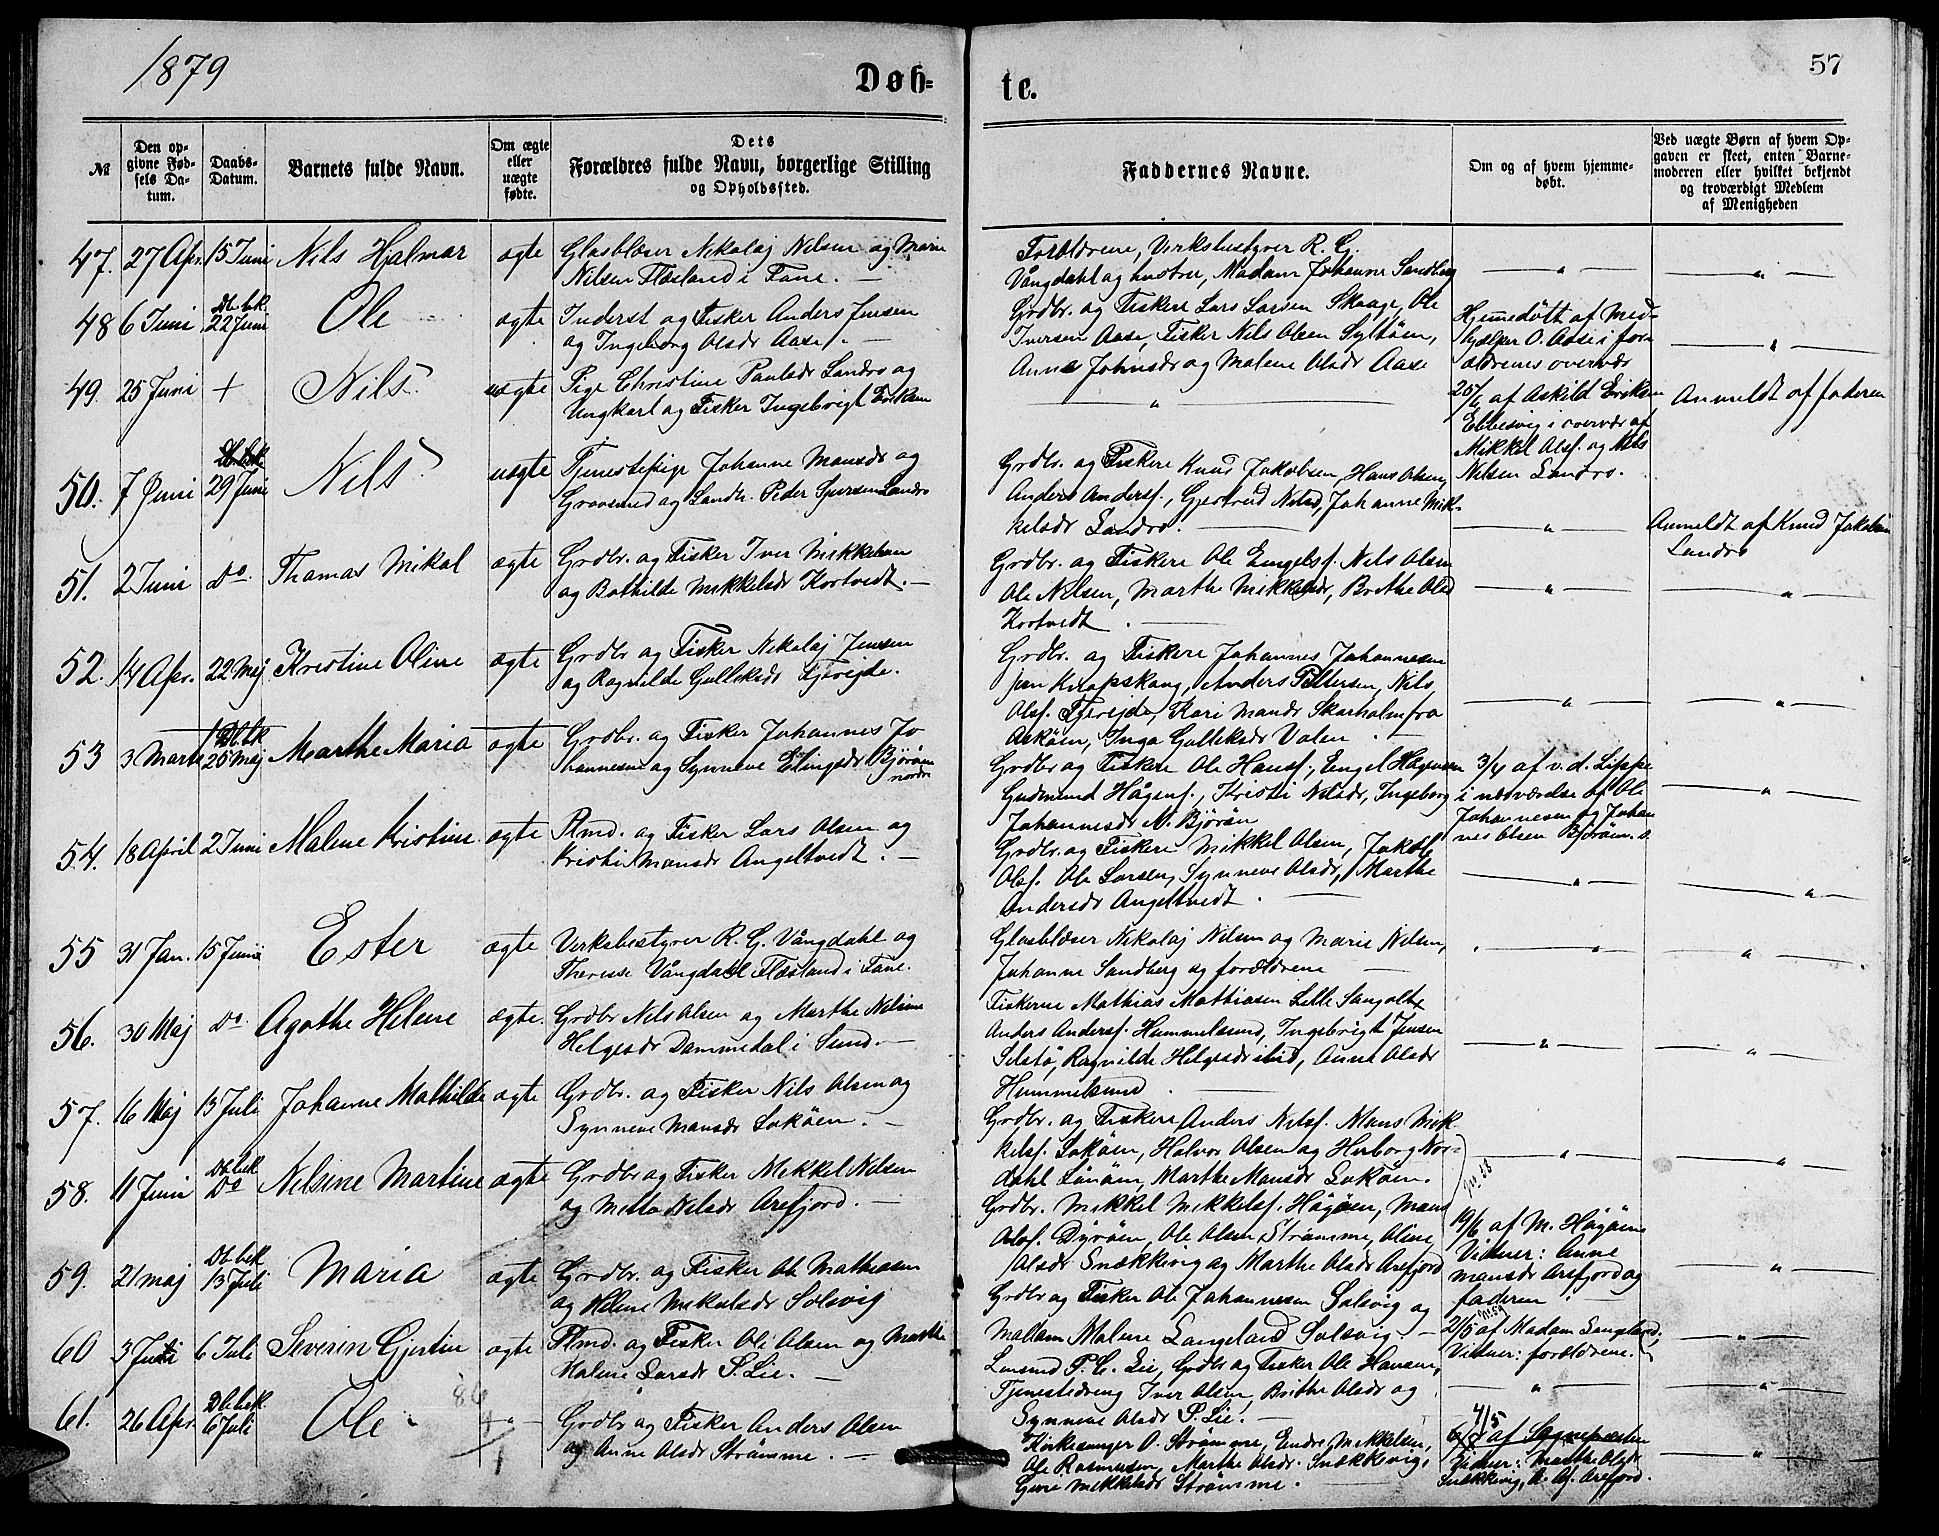 1879
Døb-
te.
57
№
Den op-
givne Fød-
sels Da-
tum.
Daabs-
Datum.
Barnets fulde Navn.
Om ægte
eller
uægte
fødte.
Dets
Forældres fulde Navn, borgerlige Stilling
og Opholdssted.
Faddernes Navne.
Om og af hvem hjemme-
døbt.
Ved uægte Børn af hvem Op-
gaven er skeet, enten Barne-
moderen eller hvilket bekjendt
og troværdigt Medlem
af Menigheden
47. 27 Apr. 15 Juni Nils Hjalmar ægte Glasblæser Nikolaj Nilsen og Marie
Nilsen Flæsland i Fane. —
Forældrene, Verksbestyrer R. G.
Vångdahl og hustru, Madam Johanne Sandberg
— " —
— " —
48 6 Juni Db. bek.
22 Juni Ole ægte Inderst og Fisker Anders Jensen
og Ingeborg Olsdr Aase. —
Grdbr. og Fiskere Lars Larsen Skaage, Ole
Iversen Aase, Fisker Nils Olsen Syltöen,
Anna Johnsdr og Malene Olsdr Aase
Hjemmedöbt af Med-
hjælper O. Aase i for-
ældrenes overvær
— " —
49. 25 Juni + Nils uægte Pige Christine Paulsdr Landro og
Ungkarl og Fisker Ingebrigt Eriksen
— " —
25/6 af Askild Eriksen
Ebbesvig i overvær af
Mikkel Olsf. og Nils
Nilsen Landro.
Anmeldt af faderen
50. 7 Juni Db. bek.
29 Juni Nils uægte Tjenestepige Johanne Mansdr og
Grovsmed og Landh. Peder Sjursen Landro
Grdbr. og Fiskere Knud Jakobsen, Hans Olsen,
Anders Andersf., Gjertrud Nilsd, Johanne Mik-
kelsdr Landro. —
— " —
Anmeldt af Knud Jakobsen
Landro
51. 2 Juni Do. Thomas Mikal ægte Grdbr. og Fisker Iver Mikkelsen
og Bothilde Mikkelsdr Kortvedt. —
Grdbr. og Fiskere Ole Engelsf. Nils Olsen
Ole Nilsen, Marthe Mikkelsdr, Brithe Olsd
Kortvedt. —
— " —
— " —
52. 14 Apr. 22 Maj Kristine Oline ægte Grdbr og Fisker Nikolaj Jensen
og Ragnilde Gulleksdr Tjerejde.
Grdbr. og Fiskere Johannes Johannesen
Knapskaug, Anders Pettersen, Nils
Olsf. Tjerejde, Kari Mansdr Skarholm fra
Asköen, Inga Gulleksdr Valen. —
— " —
— " —
53 3 Marts Db. bk
25 Maj Marthe Maria ægte Grdbr. og Fisker Johannes Jo
hannesen og Synneve Elingsdr Björöen
nordre
Grdbr og Fiskere Ole Hansf., Engel Hagensen
Gudmund Hågenf., Kristi Nilsdr, Ingeborg
Johannesdr N. Björöen
3/4 af v. d. Lippe
i nærværelse af Ole
Johannesen og Johan
nes Olsen Björöen.
— " —
54. 18 April 2 Juni Malene Kristine ægte Plmd. og Fisker Lars Olsen og
Kristi Mansdr Angeltvedt. —
Grdbr. og Fiskere Mikkel Olsen, Jakob
Olsf. Ole Larsen, Synneve Olsdr, Marthe
Andersdr Angeltvedt. —
— " —
— " —
55 31 Jan. 15 Juni Ester ægte Verksbestyrer R. G. Vångdahl og
Therese Vångdahl Flæsland i Fane.
Glasblæser Nikolaj Nilsen og Marie Nilsen,
Johanne Sandberg og forældrene —
— " —
— " —
56. 30 Maj Do Agathe Helene ægte. Grdbr Nils Olsen og Marthe
Helgesdr Dammedal i Sund. —
Fiskerne Mathias Mathiasen Lille Sangolt
Anders Andersf. Hummelsund, Ingebrigt Jensen
Telstö, Ragnilde Helgesdr ibid, Anna Olsdr
Hummelsund —
— " —
— " —
57. 16 Maj 13 Juli Johanne Mathilde ægte Grdbr. og Fisker Nils Olsen og
Synneve Mansdr Loköen. —
Grdbr. og Fiskere Anders Nilsf. Mons Mik-
kelsf. Loköen, Halvor Olsen og Herborg Nor-
dahl Lönöen, Marthe Mansdr Loköen.
— " —
— " —
58. 11 Juni Db. bek
Do Nilsine Martine ægte Grdbr og Fisker Mikkel Nilsen
og Mette Nilsdr Arefjord. —
Grdbr. Mikkel Mikkelsf. Hågöen, Mans
Olsf. Dyröen, Ole Olsen Strömme, Oline
Olsdr Snækkevig og Marthe Olsdr Arefjord
19/6 af M. Hågöen
Vidner: Anne
Mansdr Arefjord og
faderen
— " —
59. 21 Maj Db. bek.
13 Juli Maria ægte Grdbr. og Fisker Ole Mathiasen
og Helene Mikalsdr Solsvig
Grdbr og Fisker Ole Johannesen Solsvig og
Madam Malene Langeland Solsvig —
2/5 af Madam Langeland,
Vidner: forældrene.
— " —
60 3 Juli 6 Juli Severin Gjertin ægte Plmd. og Fisker Ole Olsen og Marthe
Malene Larsdr P. Lie. —
Lensmd P. C. Lie, Grdbr og Fisker Ole Hansen,
Tjenestedreng Iver Olsen, Brithe Olsdr og
Synneve Olsdr P. Lie. —
— " —
— " —
61. 26 Apr. Db. bek.
6 Juli Ole — " — Grdbr og Fisker Anders Olsen
og Anne Olsdr Strömme. —
Kirkesanger O. Strömme, Endre Mikkelsen,
Ole Rasmussen, Marthe Olsdr. Snækkevig,
Guro Mikkelsdr Strömme. —
4/5
af Sognepresten
Vidner: Marthe Olsdr
Snækkevig, Arefjord.
— " —